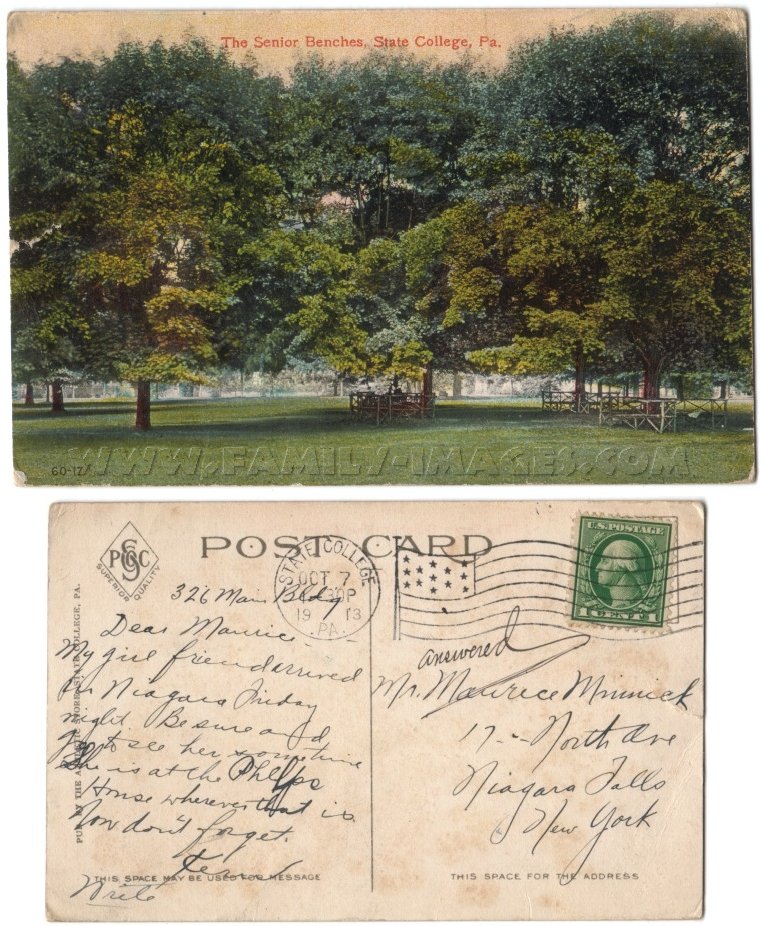 The Senior Benches, State College, Pa.
60-17
WWW.FAMILY-IMAGES.COM
POST CARD
PSCC
SUPERIOR QUALITY
STATE COLLEGE
OCT 7
30P
1913
PA.
U.S. POSTAGE
1 CENT 1
326 Main Bldg
Dear Maurice
My girl friend arrived
in Niagara Friday
night. Be sure and
go to see her sometime
She is at the Phelps
House wherever that is.
Now don't forget.
Write
answered
Mr. Maurice Minnick
17-- North Ave
Niagara Falls
New York
PUB. BY THE STORE, STATE COLLEGE, PA.
THIS SPACE MAY BE USED FOR MESSAGE
THIS SPACE FOR THE ADDRESS